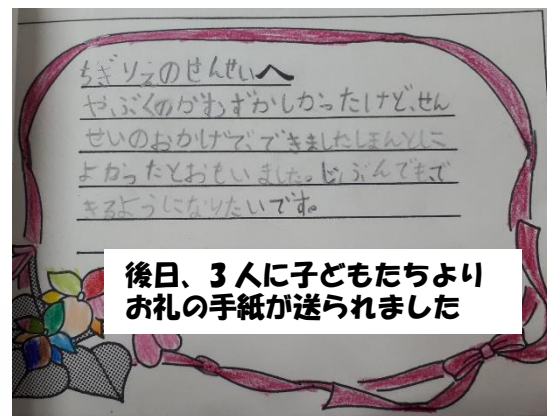 ちぎりえのせんせいへ
やぶくのがむずかしかったけど、せん
せいのおかげで、できましたしほんとに
よかったとおもいました。じぶんでも、で
きるようになりたいです。
後日、３人に子どもたちより
お礼の手紙が送られました